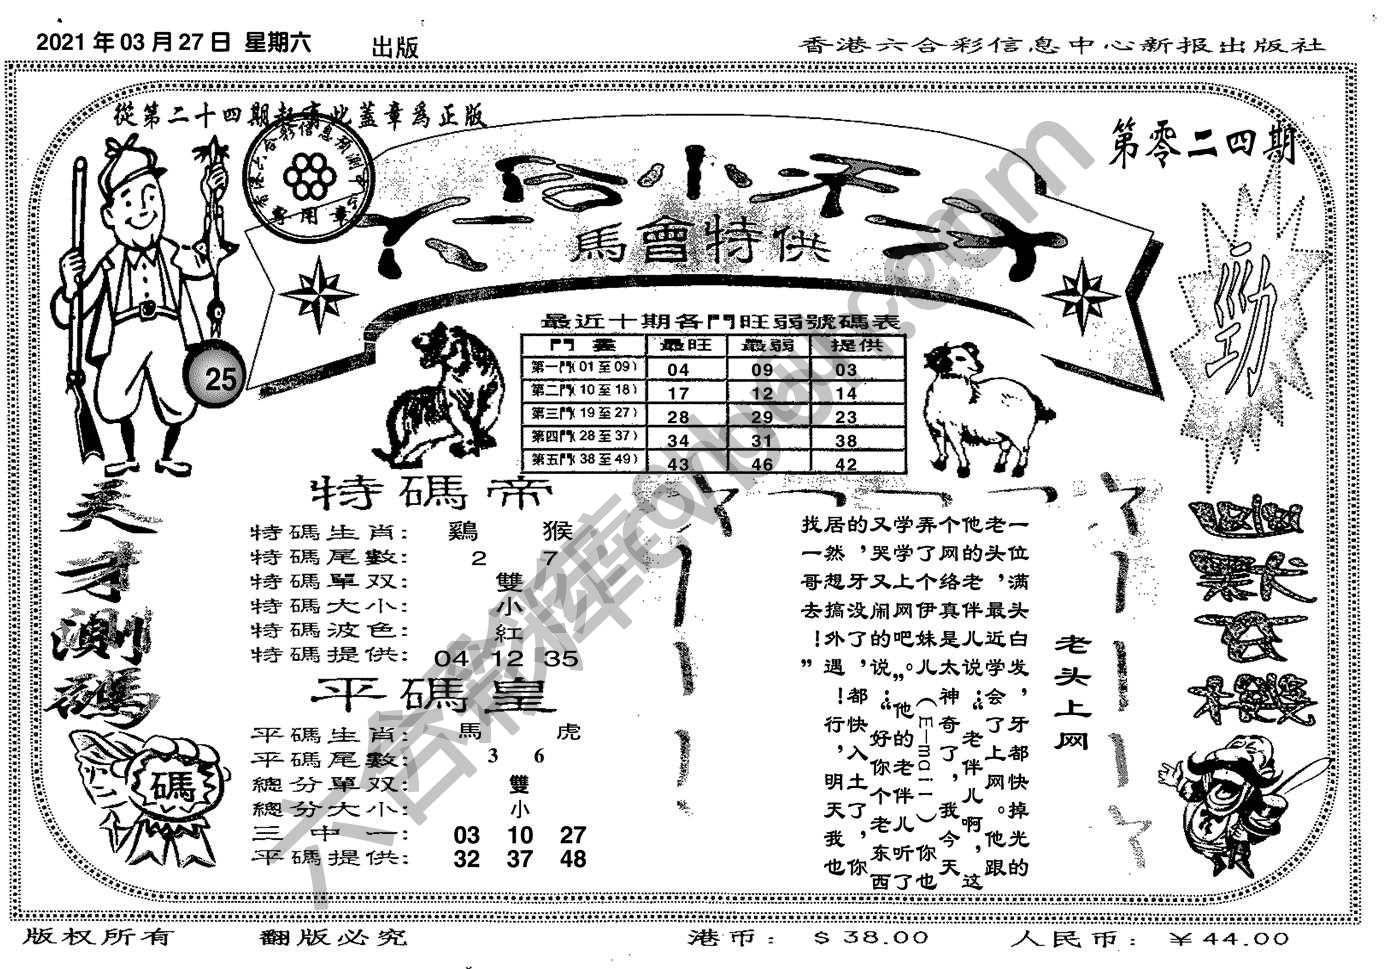 2021 年 03 月 27 日 星期六 出版
香港六合彩信息中心新报出版社
從第二十四期起寄此蓋章爲正版
第零二四期
六合小天才
馬會特供
勁
25
最近十期各門旺弱號碼表
門 最旺 最弱 提供
第一門(01至09) 04 09 03
第二門(10至18) 17 12 14
第三門(19至27) 28 29 23
第四門(28至37) 34 31 38
第五門(38至49) 43 46 42
天才測碼
碼
特碼帝
特碼生肖: 鷄 猴
特碼尾數: 2 7
特碼單双: 雙
特碼大小: 小
特碼波色: 紅
特碼提供: 04 12 35
平碼皇
平碼生肖: 馬 虎
平碼尾數: 3 6
總分單双: 雙
總分大小: 小
三中一: 03 10 27
平碼提供: 32 37 48
老头上网
一位满头白发,牙都快掉光的
老头,最近学会了上网。他跟
他的老伴儿说:“老伴儿啊,这
个网络真是太神奇了,我今天
弄了个伊妹儿(E—mail)你也
学学上网吧。”他的老伴儿听了
又哭又闹的说:“好你个老东西
的,牙没了,都快入土了,你
居然想搞外遇!行,明天我也
找一哥去!”
版权所有 翻版必究 港币: $38.00 人民币: ￥44.00
六合彩庫